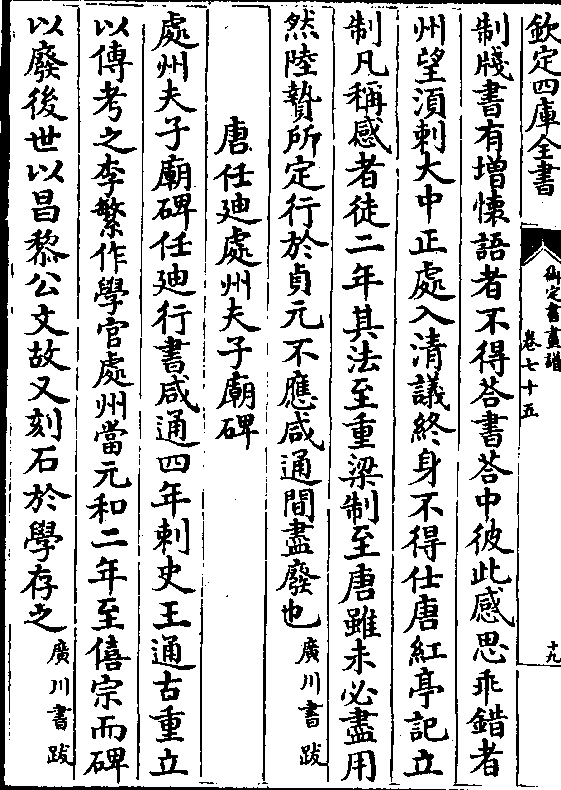 欽定四庫全書
御定書畫譜
卷七十五
十九
制牋書有增懐語者不得荅書荅中彼此感思乖錯者
州望湏刺大中正處入清議終身不得仕唐紅亭記立
制凡稱感者徒二年其法至重梁制至唐雖未必盡用
然陸贄所定行於貞元不應咸通間盡廢也廣川書跋
唐任廸處州夫子廟碑
處州夫子廟碑任廸行書咸通四年刺史王通古重立
以傳考之李繁作學官處州當元和二年至僖宗而碑
以廢後世以昌黎公文故又刻石於學存之廣川書跋